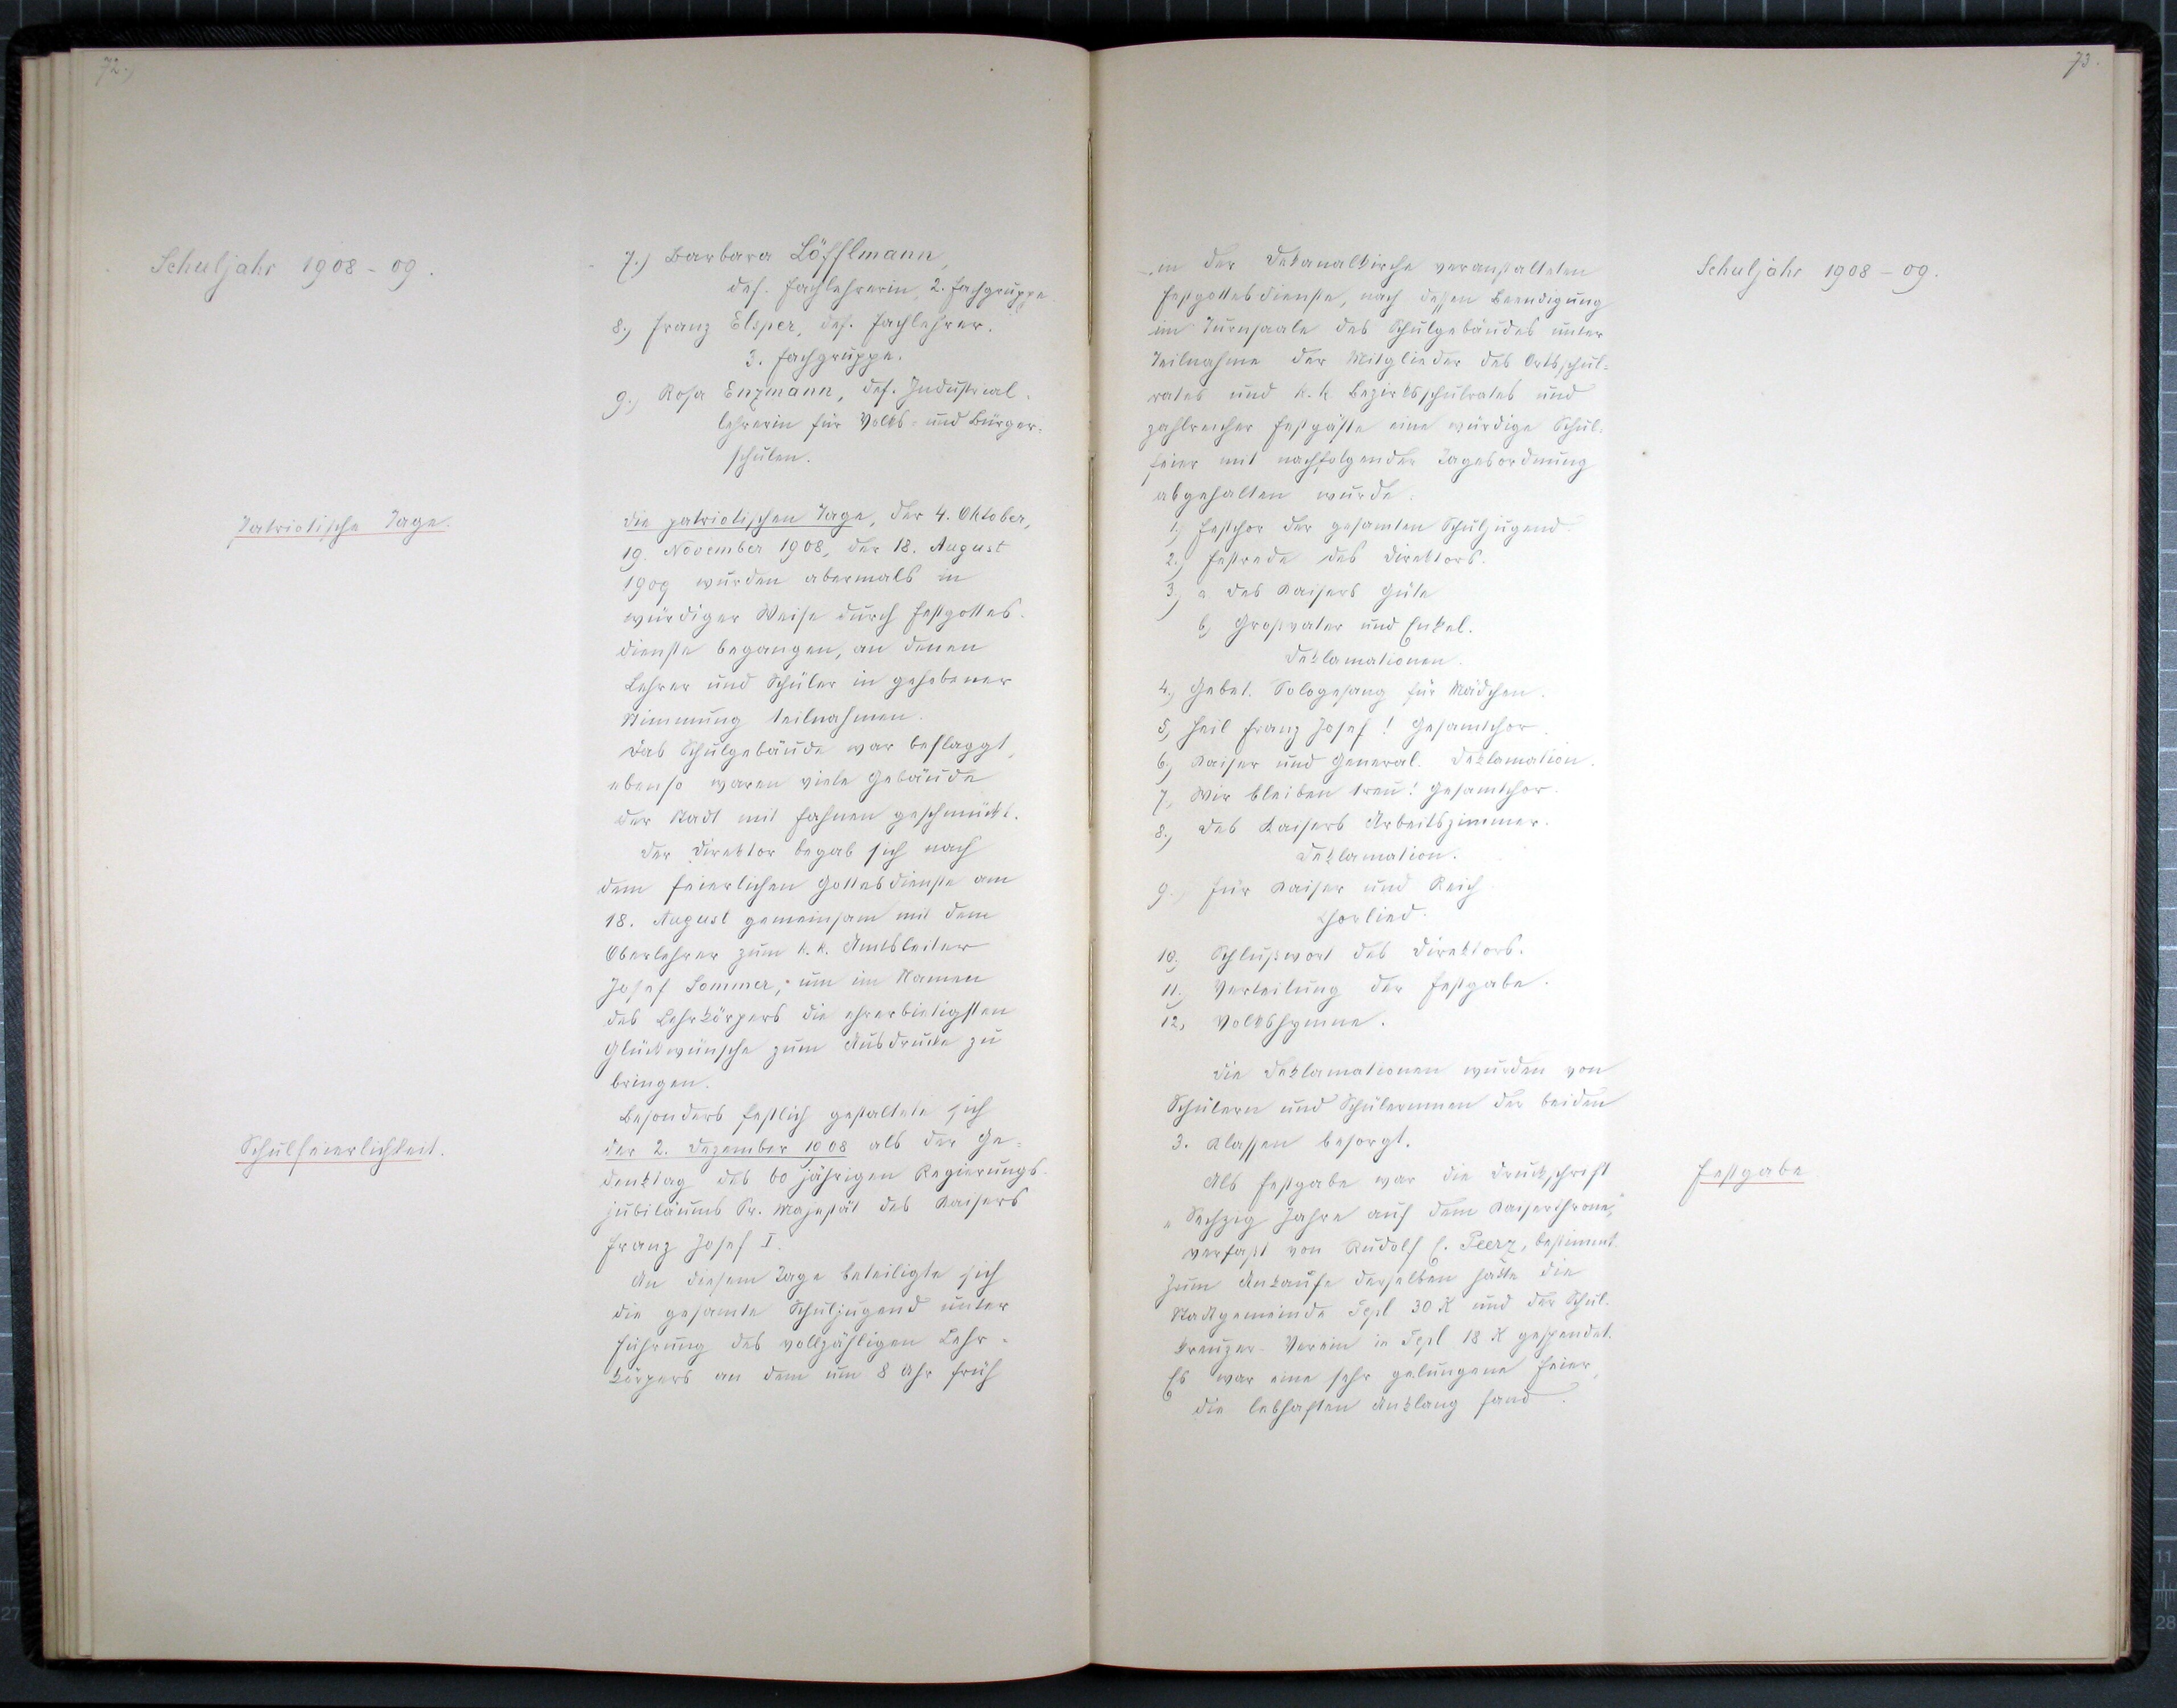 72.,
Schuljahr 1908 - 09.
7.) Barbara Löfflmann,
def. Fachlehrerin, 2. Fachgruppe
8.) Franz Elsper, def. Fachlehrer.
3. Fachgruppe.
9.) Rosa Enzmann, def. Industrial-
lehrerin für Volks- und Bürger-
schulen.
Patriotische Tage.
Die patriotischen Tage, der 4. Oktober,
19. November 1908, der 18. August
1909 wurden abermals in
würdiger Weise durch Festgottes-
dienste begangen, an denen
Lehrer und Schüler in gehobener
Stimmung teilnahmen.
Das Schulgebäude war beflaggt,
ebenso waren viele Gebäude
der Stadt mit Fahnen geschmückt.
Der Direktor begab sich nach
dem feierlichen Gottesdienste am
18. August gemeinsam mit dem
Oberlehrer zum k. k. Amtsleiter
Josef Sommer, um im Namen
des Lehrkörpers die ehrerbietigsten
Glückwünsche zum Ausdrucke zu
bringen.
Schulfeierlichkeit.
Besonders festlich gestaltete sich
der 2. Dezember 1908 als der Ge-
denktag des 60 jährigen Regierungs-
jubiläums Sr. Majestät des Kaisers
Franz Josef I.
An diesem Tage beteiligte sich
die gesamte Schuljugend unter
Führung des vollzähligen Lehr-
körpers an dem um 8 Uhr früh
73.
Schuljahr 1908 - 09.
in der Dekanalkirche veranstalteten
Festgottesdienste, nach dessen Beendigung
im Turnsaale des Schulgebäudes unter
Teilnahme der Mitglieder des Ortsschul-
rates und k. k. Bezirksschulrates und
zahlreicher Festgäste eine würdige Schul-
feier mit nachfolgender Tagesordnung
abgehalten wurde.
1.) Festchor der gesamten Schuljugend
2.) Festrede des Direktors.
3.) a. Des Kaisers Güte
b.) Großvater und Enkel.
Deklamationen.
4.) Gebet. Sologesang für Mädchen.
5.) Heil Franz Josef! Gesamtchor.
6.) Kaiser und General. Deklamation.
7.) Wir bleiben treu! Gesamtchor.
8.) Des Kaisers Arbeitszimmer.
Deklamation.
9.) Für Kaiser und Reich
Chorlied.
10.) Schlußwort des Direktors.
11.) Verteilung der Festgabe.
12.) Volkshymne.
Die Deklamationen wurden von
Schülern und Schülerinnen der beiden
3. Klassen besorgt.
Festgabe
Als Festgabe war die Druckschrift
"Sechzig Jahre auf dem Kaiserthrone,"
verfaßt von Rudolf E. Peerz, bestimmt.
Zum Ankaufe derselben hatte die
Stadtgemeinde Tepl 30 K und der Schul-
kreuzer-Verein in Tepl 18 K gespendet.
Es war eine sehr gelungene Feier,
die lebhaften Anklang fand.